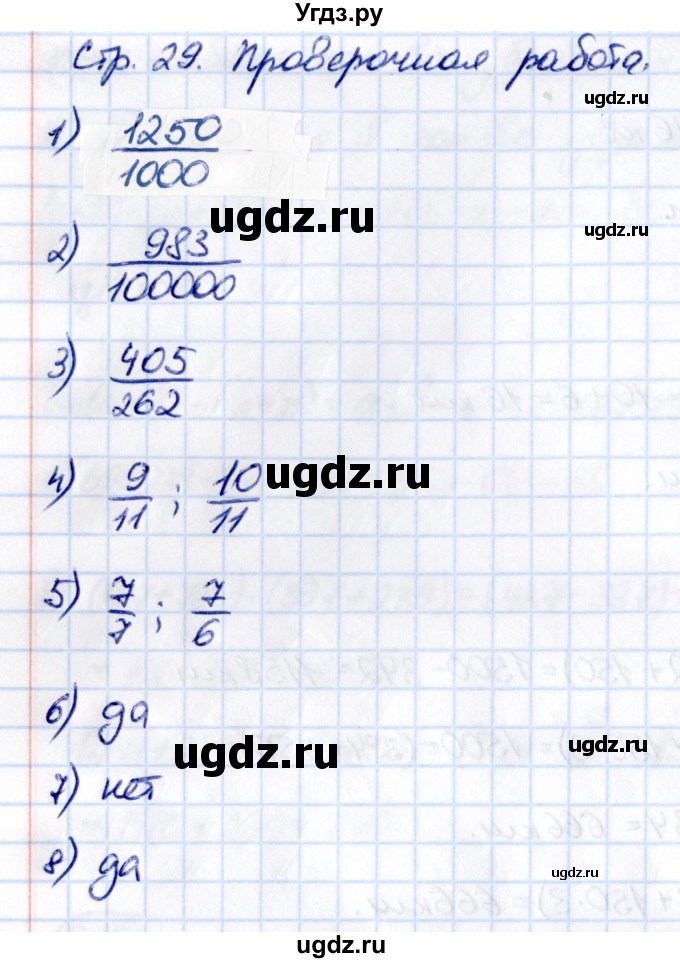 Угдз.ру
Стр. 29. Проверочная работа.
ugdz.ru
1) 1250/1000
ugdz.ru
ugdz.ru
2) 983/100000
3) 405/262
ugdz.ru
4) 9/11 ; 10/11
ugdz.ru
5) 7/7 ; 7/6
6) да
ugdz.ru
ugdz.ru
7) нет
8) да
ugdz.ru
ugdz.ru